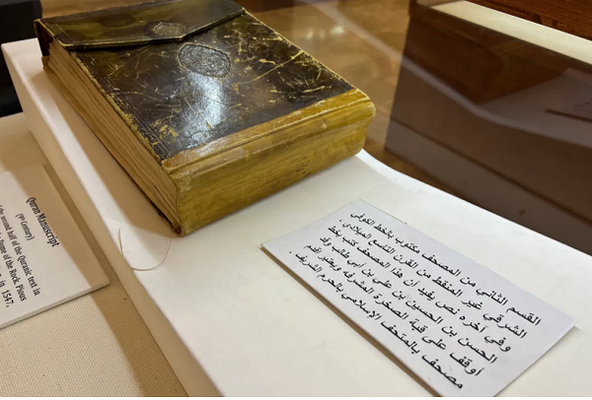 القسم الثاني من المصحف مكتوب بالخط الكوفي
الشرقي غير المنقط من القرن التاسع الميلادي،
وفي آخره نص يفيد ان هذا المصحف كتب بخط
الحسن بن الحسين بن علي بن ابي طالب وقد
أوقف على قبة الصخرة المشرفة ويعتبر اقدم
مصحف بالمتحف الإسلامي بالحرم الشريف.
Quran Manuscript
(9th Century)
the second half of the Quranic text in
Dome of the Rock. Pious
in 1547,